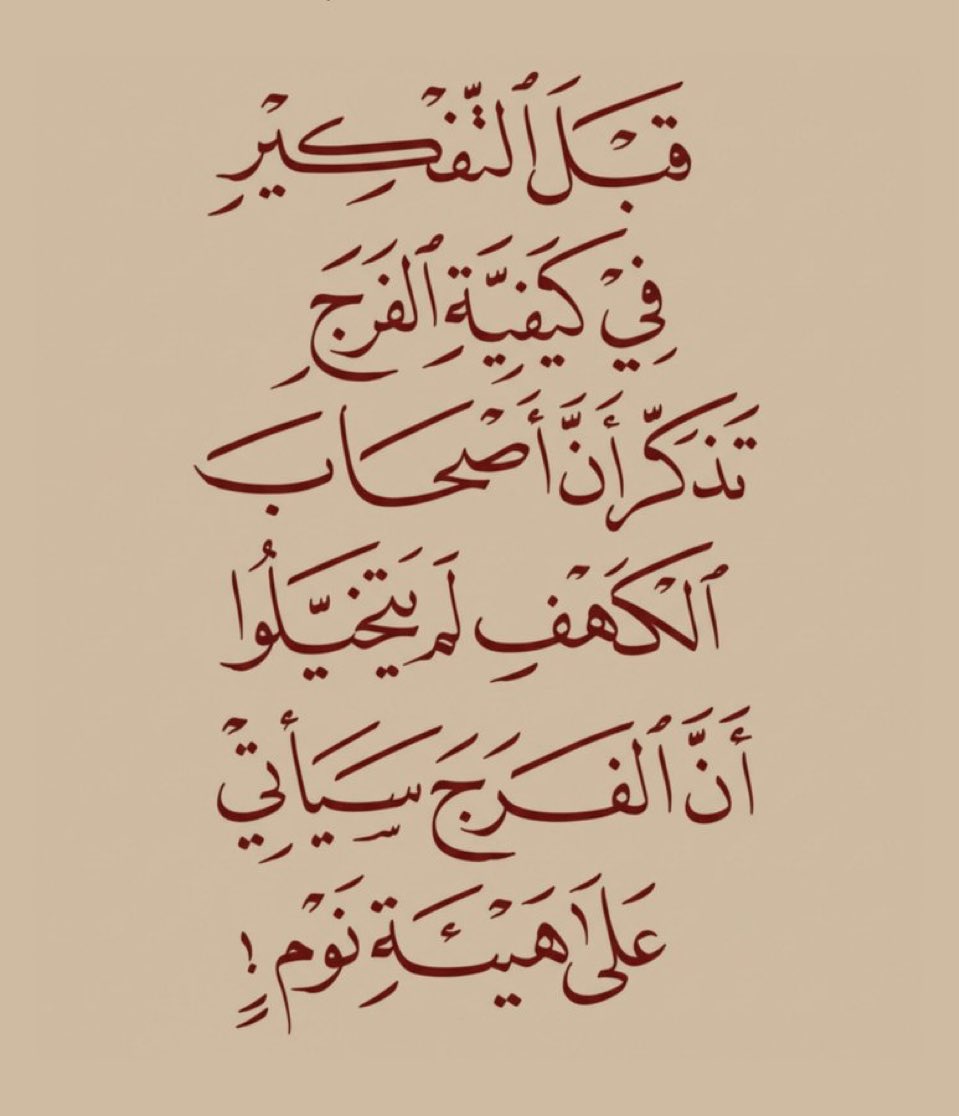 قَبْلَ ٱلتَّفْكِيْرِ
فِيْ كَيْفِيَّةِ ٱلفَرَجِ
تَذَكَّرْ أَنَّ أَصْحَابَ
ٱلْكَهْفِ لَمْ يَتَخَيَّلُوا
أَنَّ ٱلفَرَجَ سَيَأتِيْ
عَلَىٰ هَيْئَةِ نَوْمٍ !